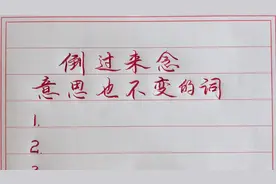 倒过来念
意思也不变的词
1.
2.
3.